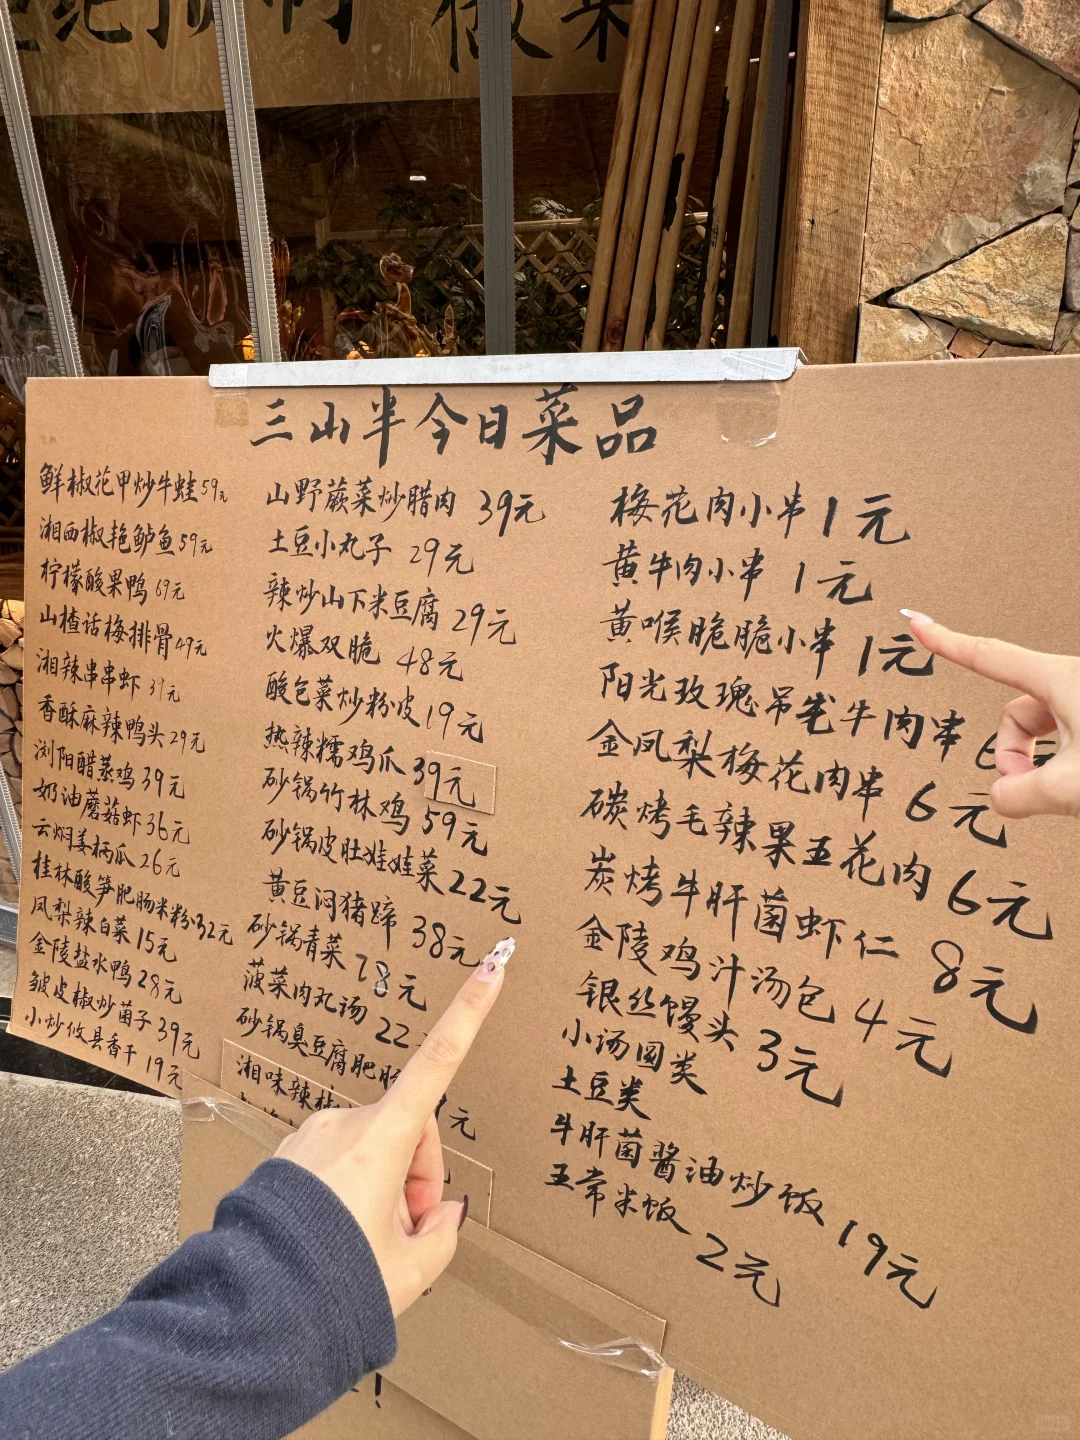 三山半今日菜品
鲜椒花甲炒牛蛙59元
湘西椒艳鲈鱼59元
柠檬酸果鸭69元
山楂话梅排骨49元
湘辣串串虾39元
香酥麻辣鸭头29元
浏阳醋蒸鸡39元
奶油蘑菇虾36元
云焖姜柄瓜26元
桂林酸笋肥肠米粉32元
凤梨辣白菜15元
金陵盐水鸭28元
皱皮椒炒菌子39元
小炒攸县香干19元
山野蕨菜炒腊肉 39元
土豆小丸子 29元
辣炒山下米豆腐 29元
火爆双脆 48元
酸包菜炒粉皮19元
热辣糯鸡爪39元
砂锅竹林鸡59元
砂锅皮肚娃娃菜22元
黄豆闷猪蹄38元
砂锅青菜 18元
菠菜肉丸汤 22
砂锅臭豆腐肥肠
湘味辣椒
元
梅花肉小串1元
黄牛肉小串 1元
黄喉脆脆小串 1元
阳光玫瑰吊笼牛肉串 6元
金凤梨梅花肉串 6元
碳烤毛辣果五花肉 6元
炭烤牛肝菌虾仁 8元
金陵鸡汁汤包 4元
银丝馒头 3元
小汤圆类
土豆类
牛肝菌酱油炒饭 19元
五常米饭 2元